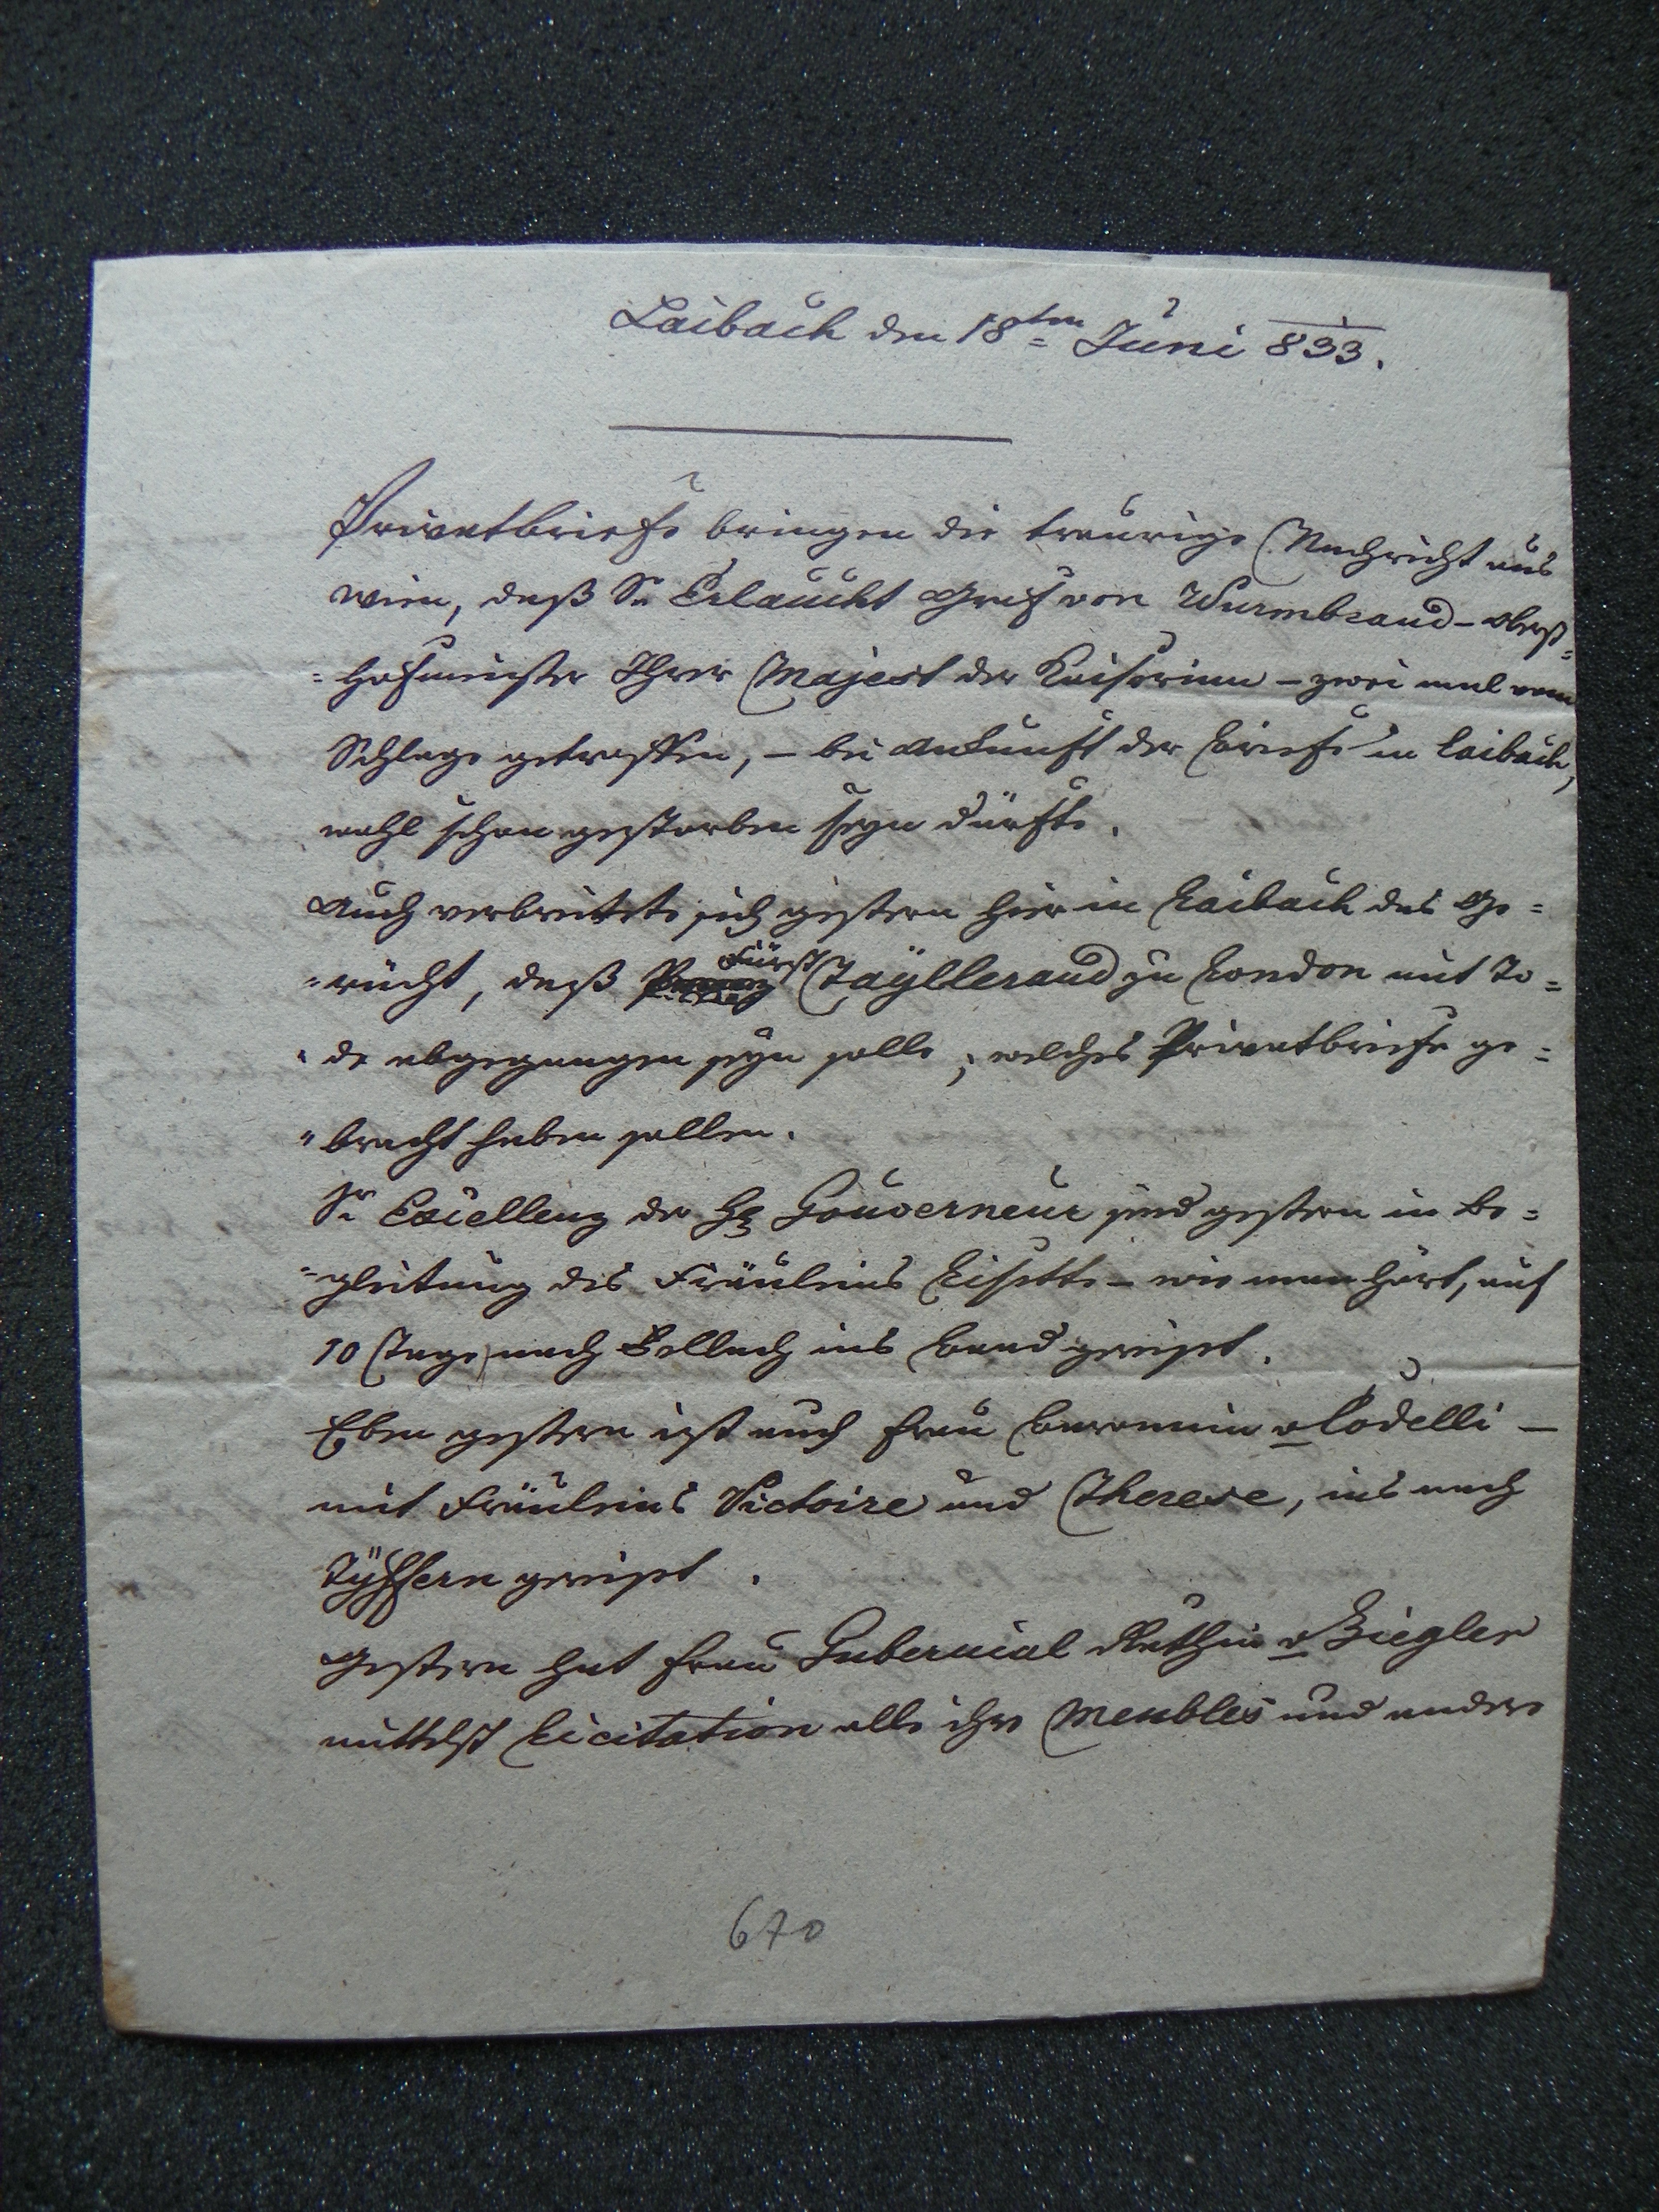 Laibach den 18ten Juni 833.
Privatbriefe bringen die traurige Nachricht aus
Wien, daß Sr Erlaucht Graf von Wurmbrand – Oberst=
=hofmeister Ihrer Majest der Kaiserinn – zwei mal vom
Schlage getroffen, – bei Ankunft der Briefe in Laibach,
wohl schon gestorben seyn dürfte.
Auch verbreitete sich gestern hier in Laibach das Ge=
=rücht, daß Fürst Tayllerand zu London mit To=
=de abgegangen seyn solle, welches Privatbriefe ge=
=bracht haben sollen.
Sr Excellenz der H Gouverneur sind gestern in Be=
=gleitung des Fräuleins Lisette – wie man hört, auf
10 Tage nach Vellach ins Baad gereist.
Eben gestern ist auch Frau Baronnin v Codelli –
mit Fräuleins Victoire und Therese, nach
Tüffern gereist.
Gestern hat Frau Gubernial Räthin v Ziegler
mittelst Licitation alle ihre Meubles und andere
670